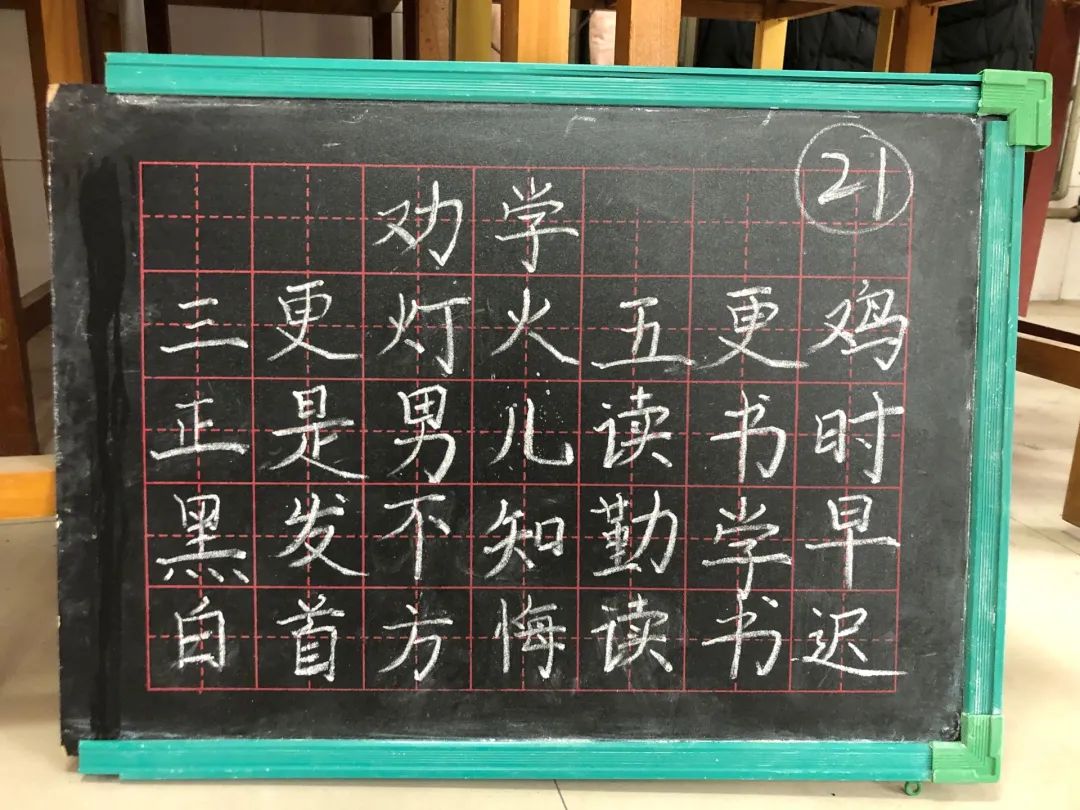 21
劝学
三更灯火五更鸡
正是男儿读书时
黑发不知勤学早
白首方悔读书迟